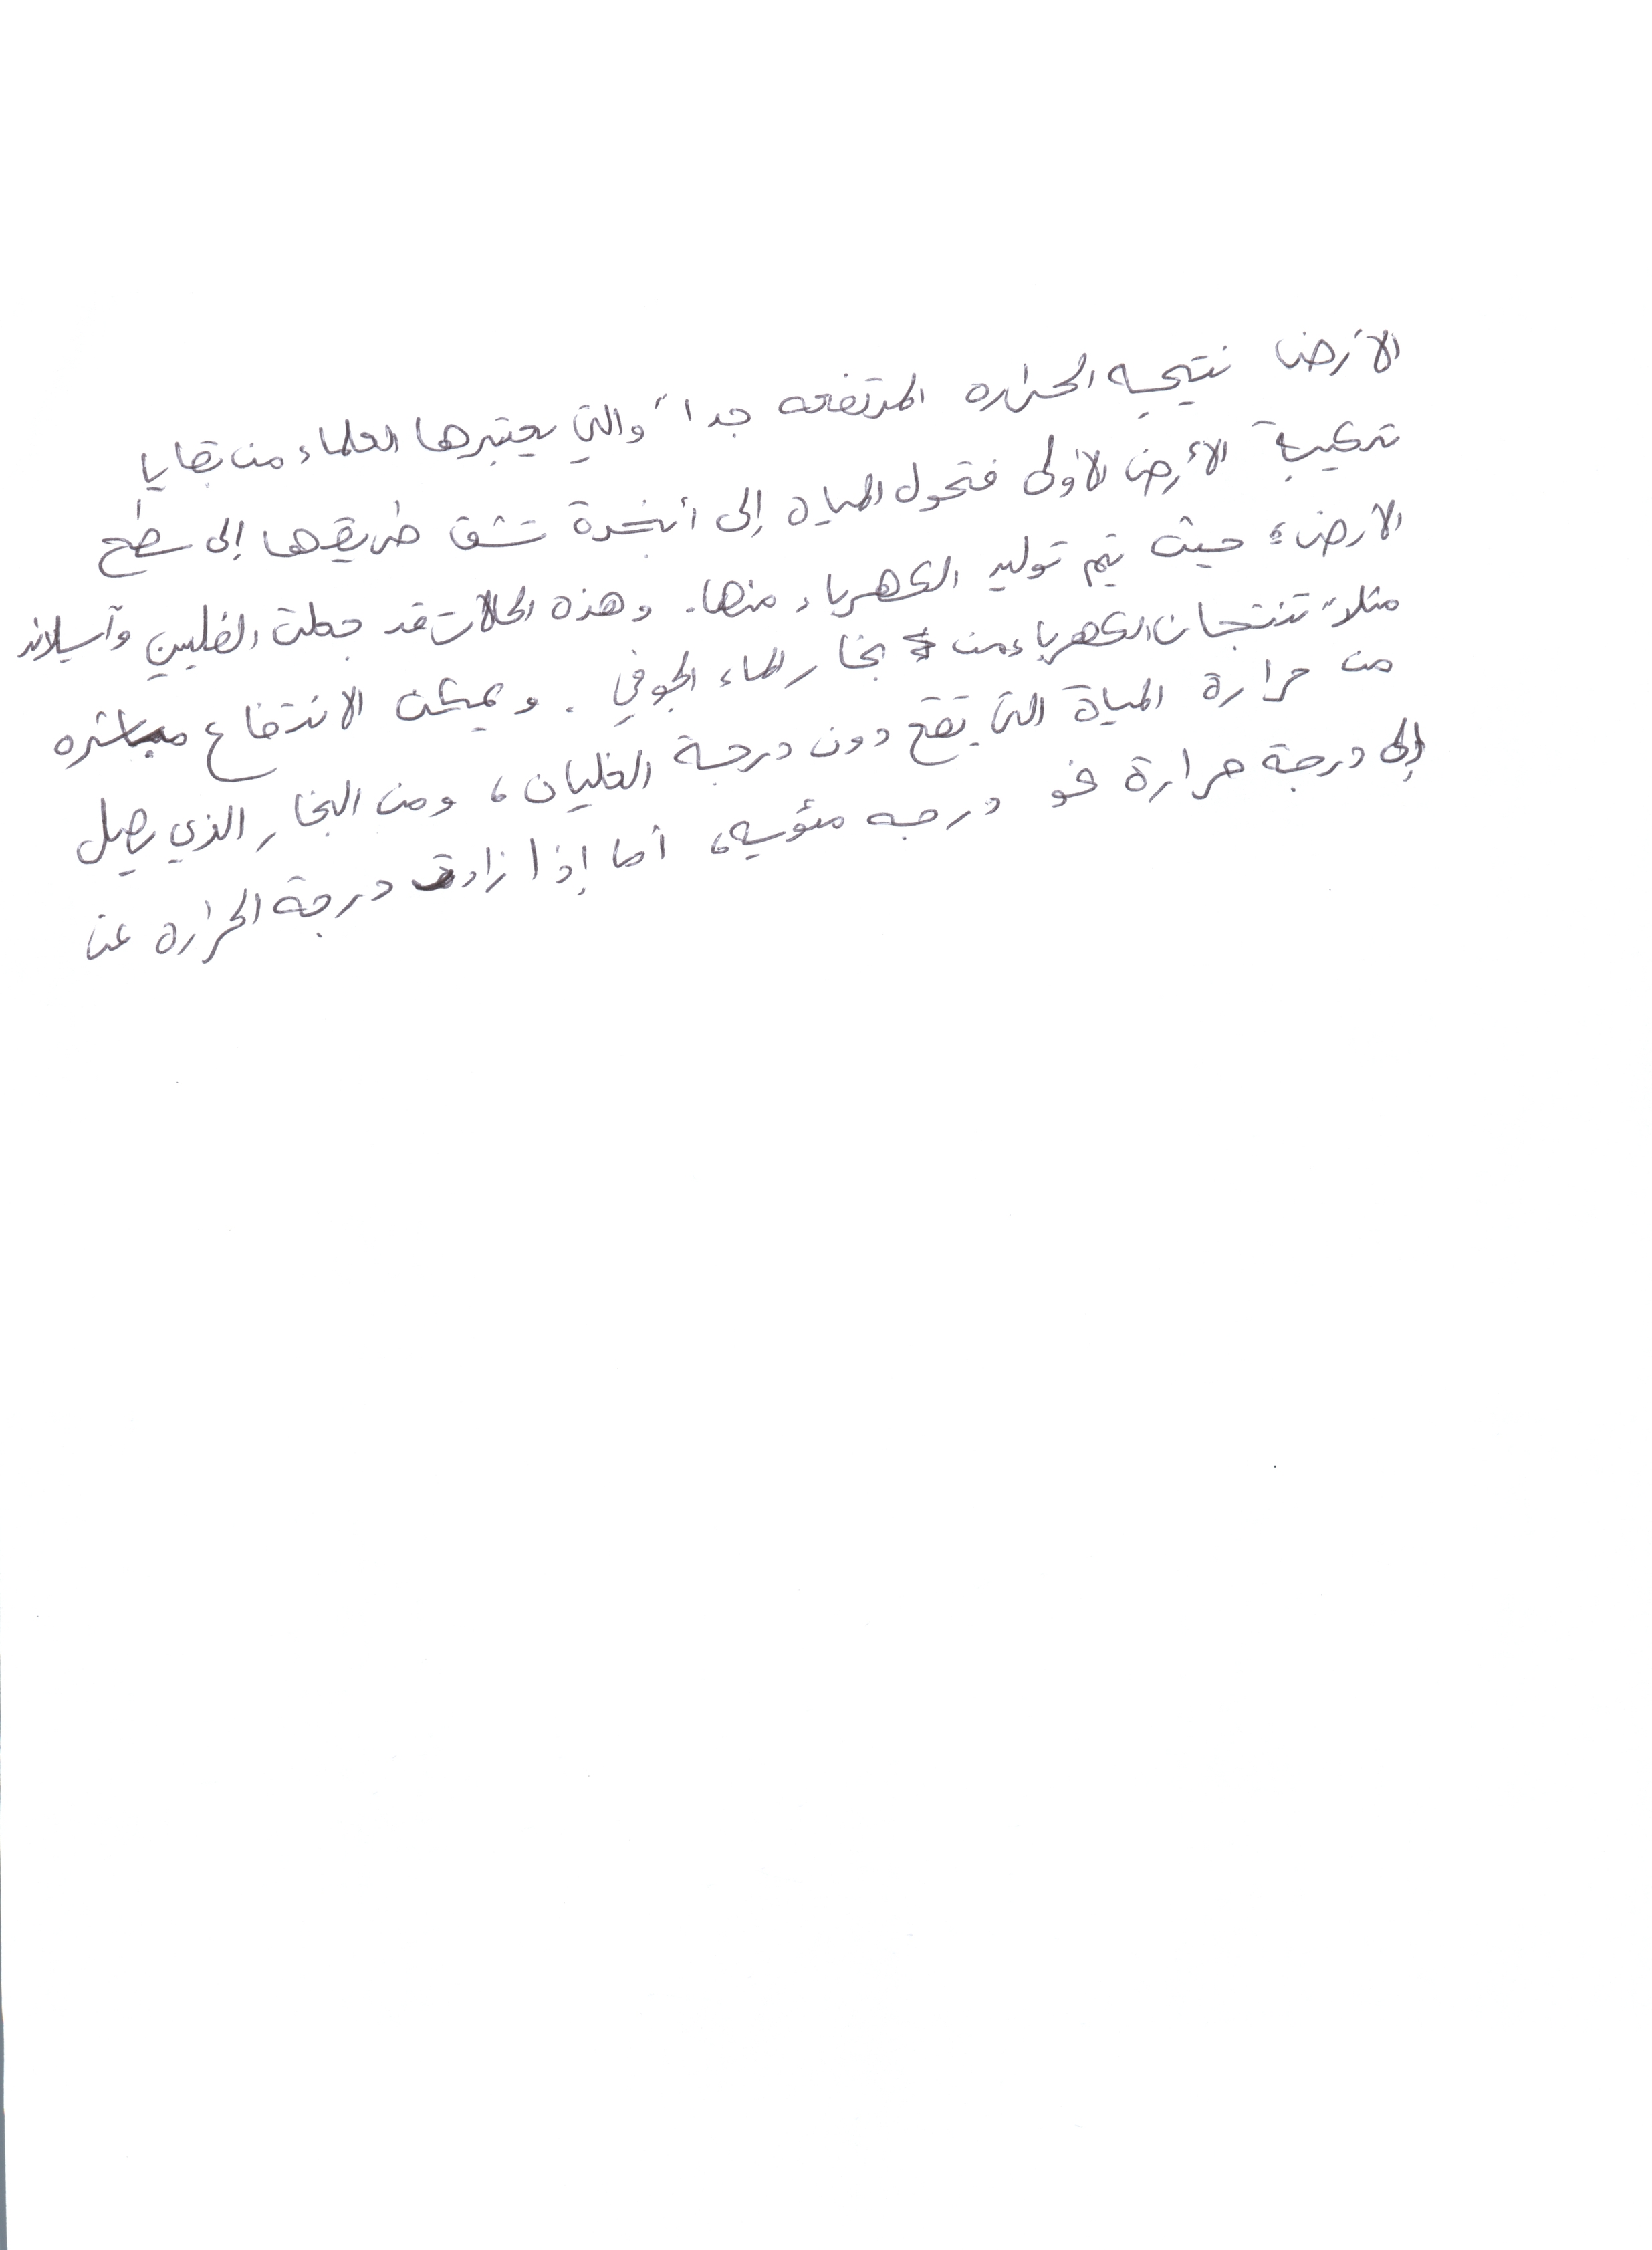 الأرض نتيجه الحراره المرتفعه جداً والتي يعتبرها العلماء من بقايا
تركيبة الأرض الأولى فتحول المياه إلى أبخرة تشق طريقها إلى سطح
الارض؛ حيث يتم توليد الكهرباء منها. وهذه الحالات قد جعلت الفلبين وآسيلاند
مثلاً تنتجان الكهرباء من بخار الماء الجوفي. ويمكن الانتفاع مباشره
من حرارة المياة التي تقع دون درجة الغليان، ومن البخار الذي يصل
إلى درجة حرارة نحو درجه مئويه، أما إذا زادت درجة الحراره عن